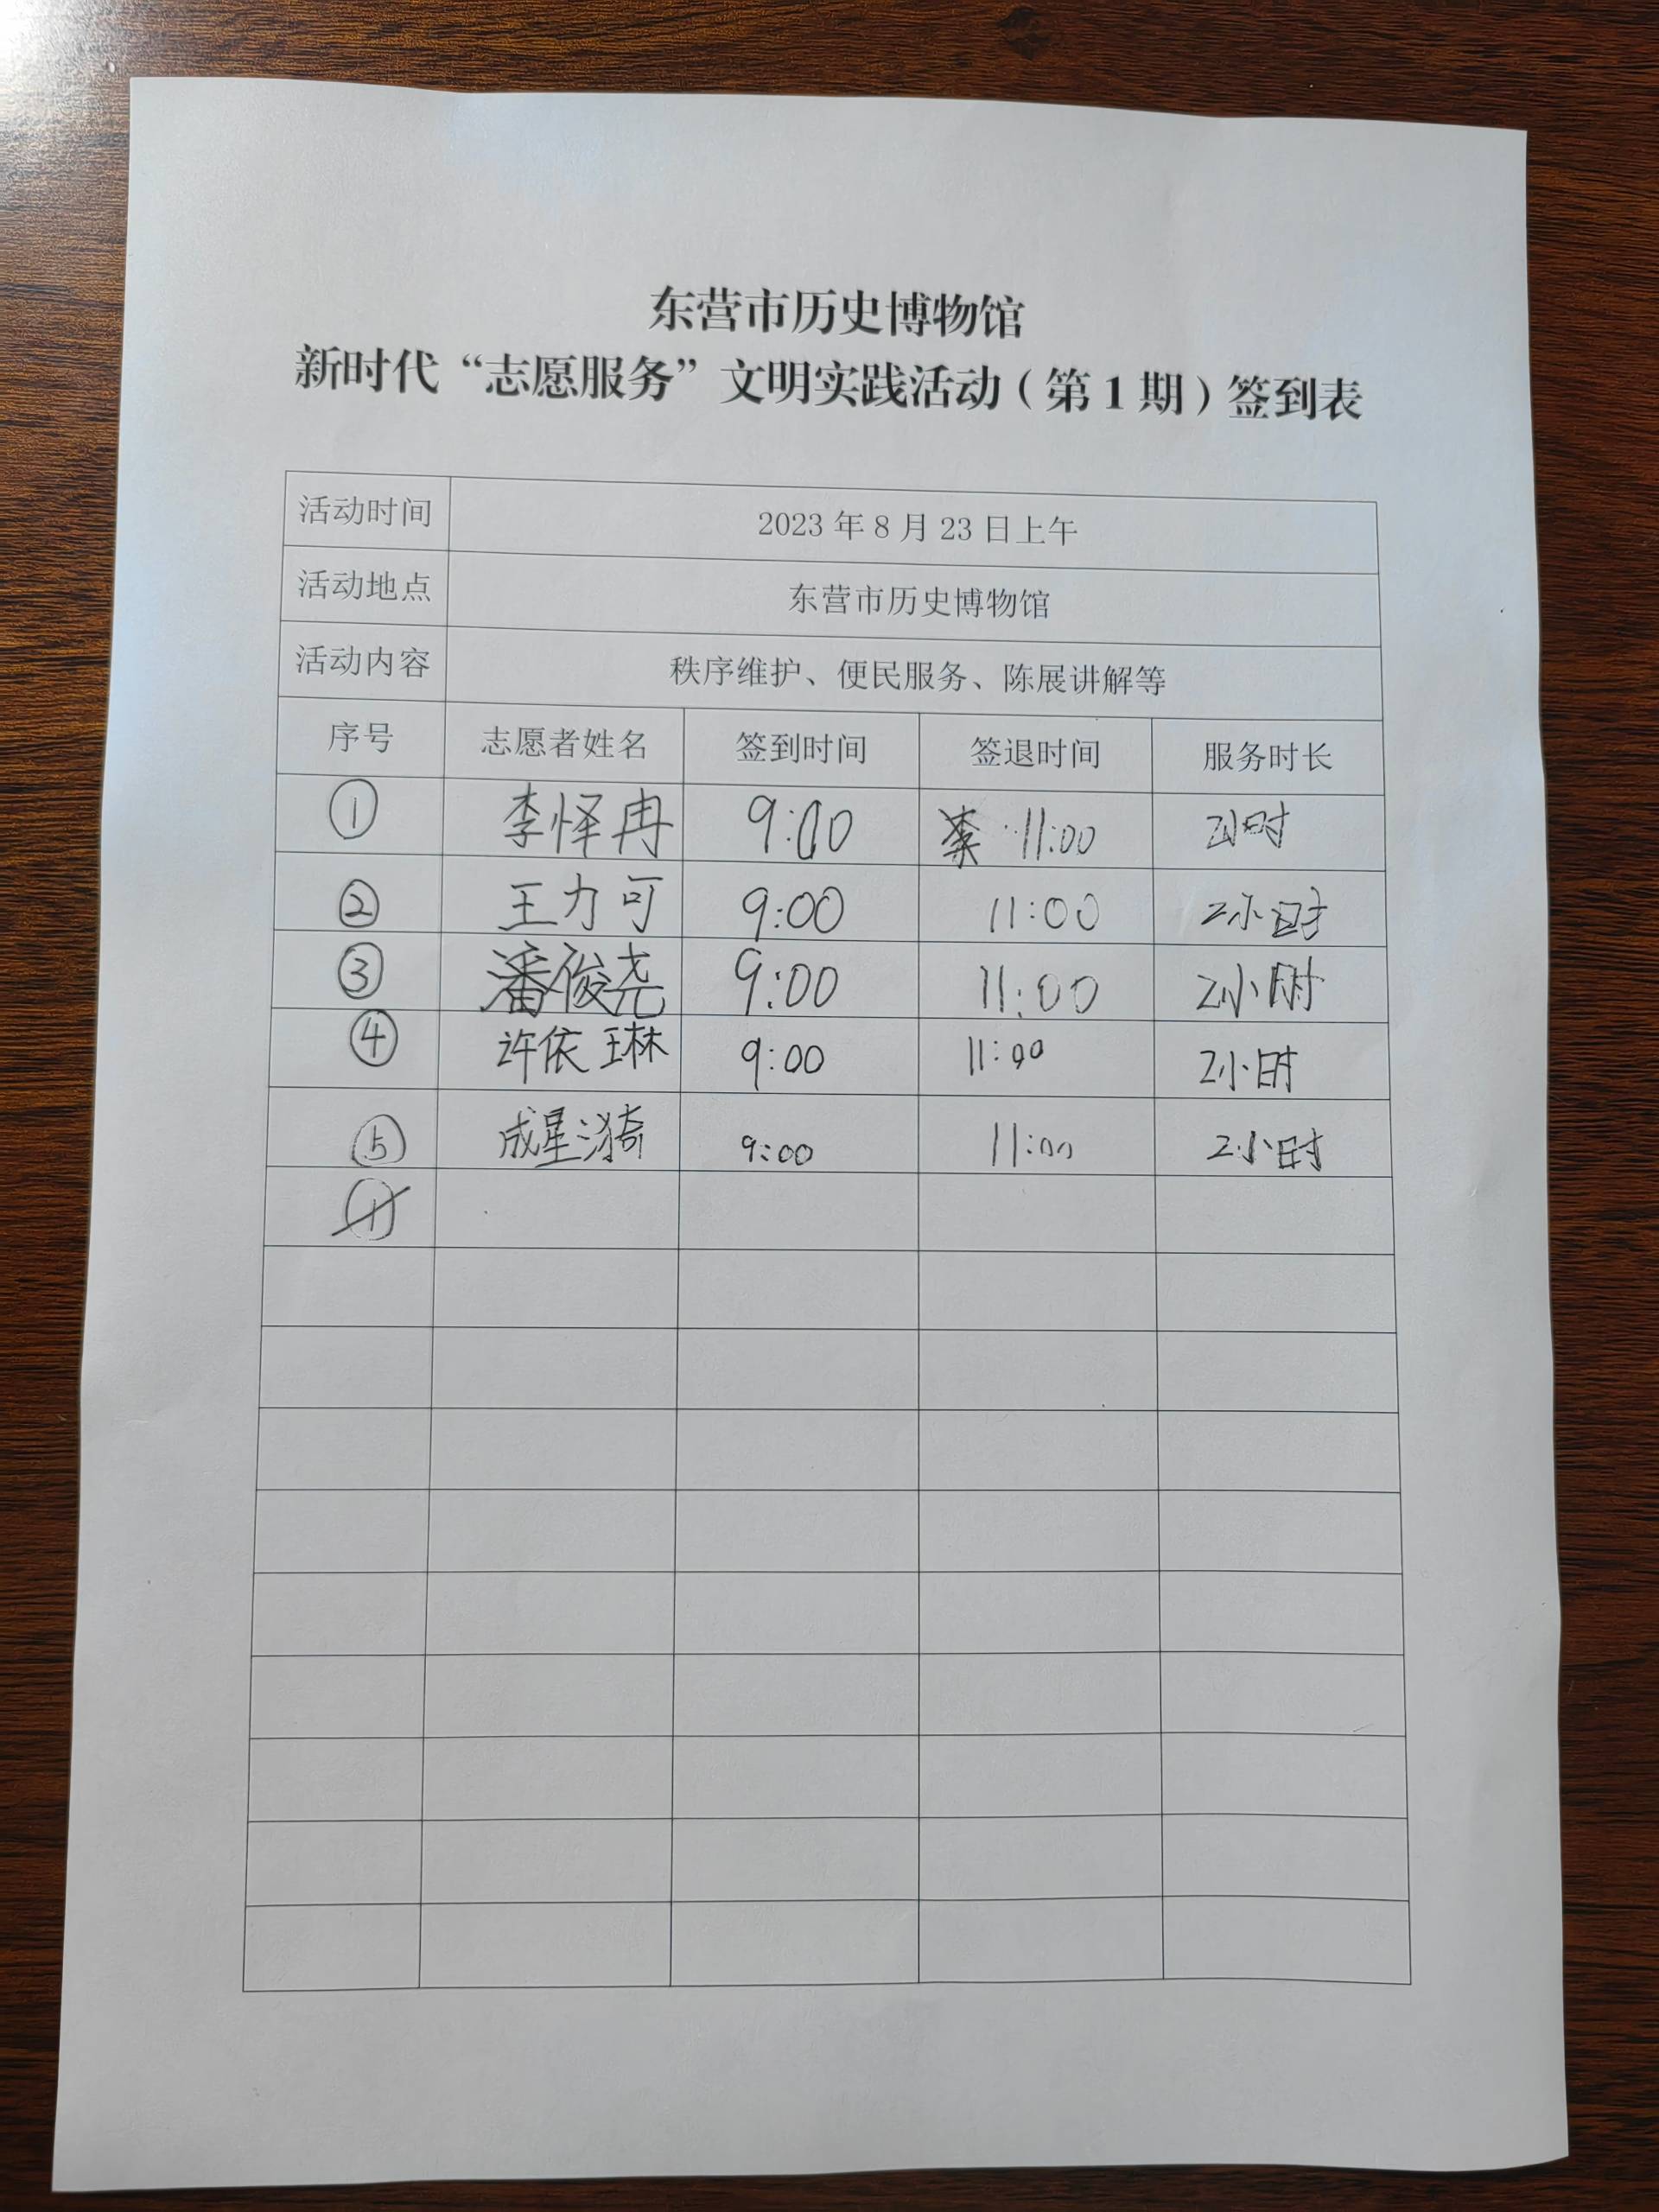 东营市历史博物馆
新时代“志愿服务”文明实践活动(第1期)签到表
活动时间 2023年8月23日上午
活动地点 东营市历史博物馆
活动内容 秩序维护、便民服务、陈展讲解等
序号 志愿者姓名 签到时间 签退时间 服务时长
① 李怿冉 9:00 11:00 2小时
② 王力可 9:00 11:00 2小时
③ 潘俊尧 9:00 11:00 2小时
④ 许依琳 9:00 11:00 2小时
⑤ 成星漪 9:00 11:00 2小时